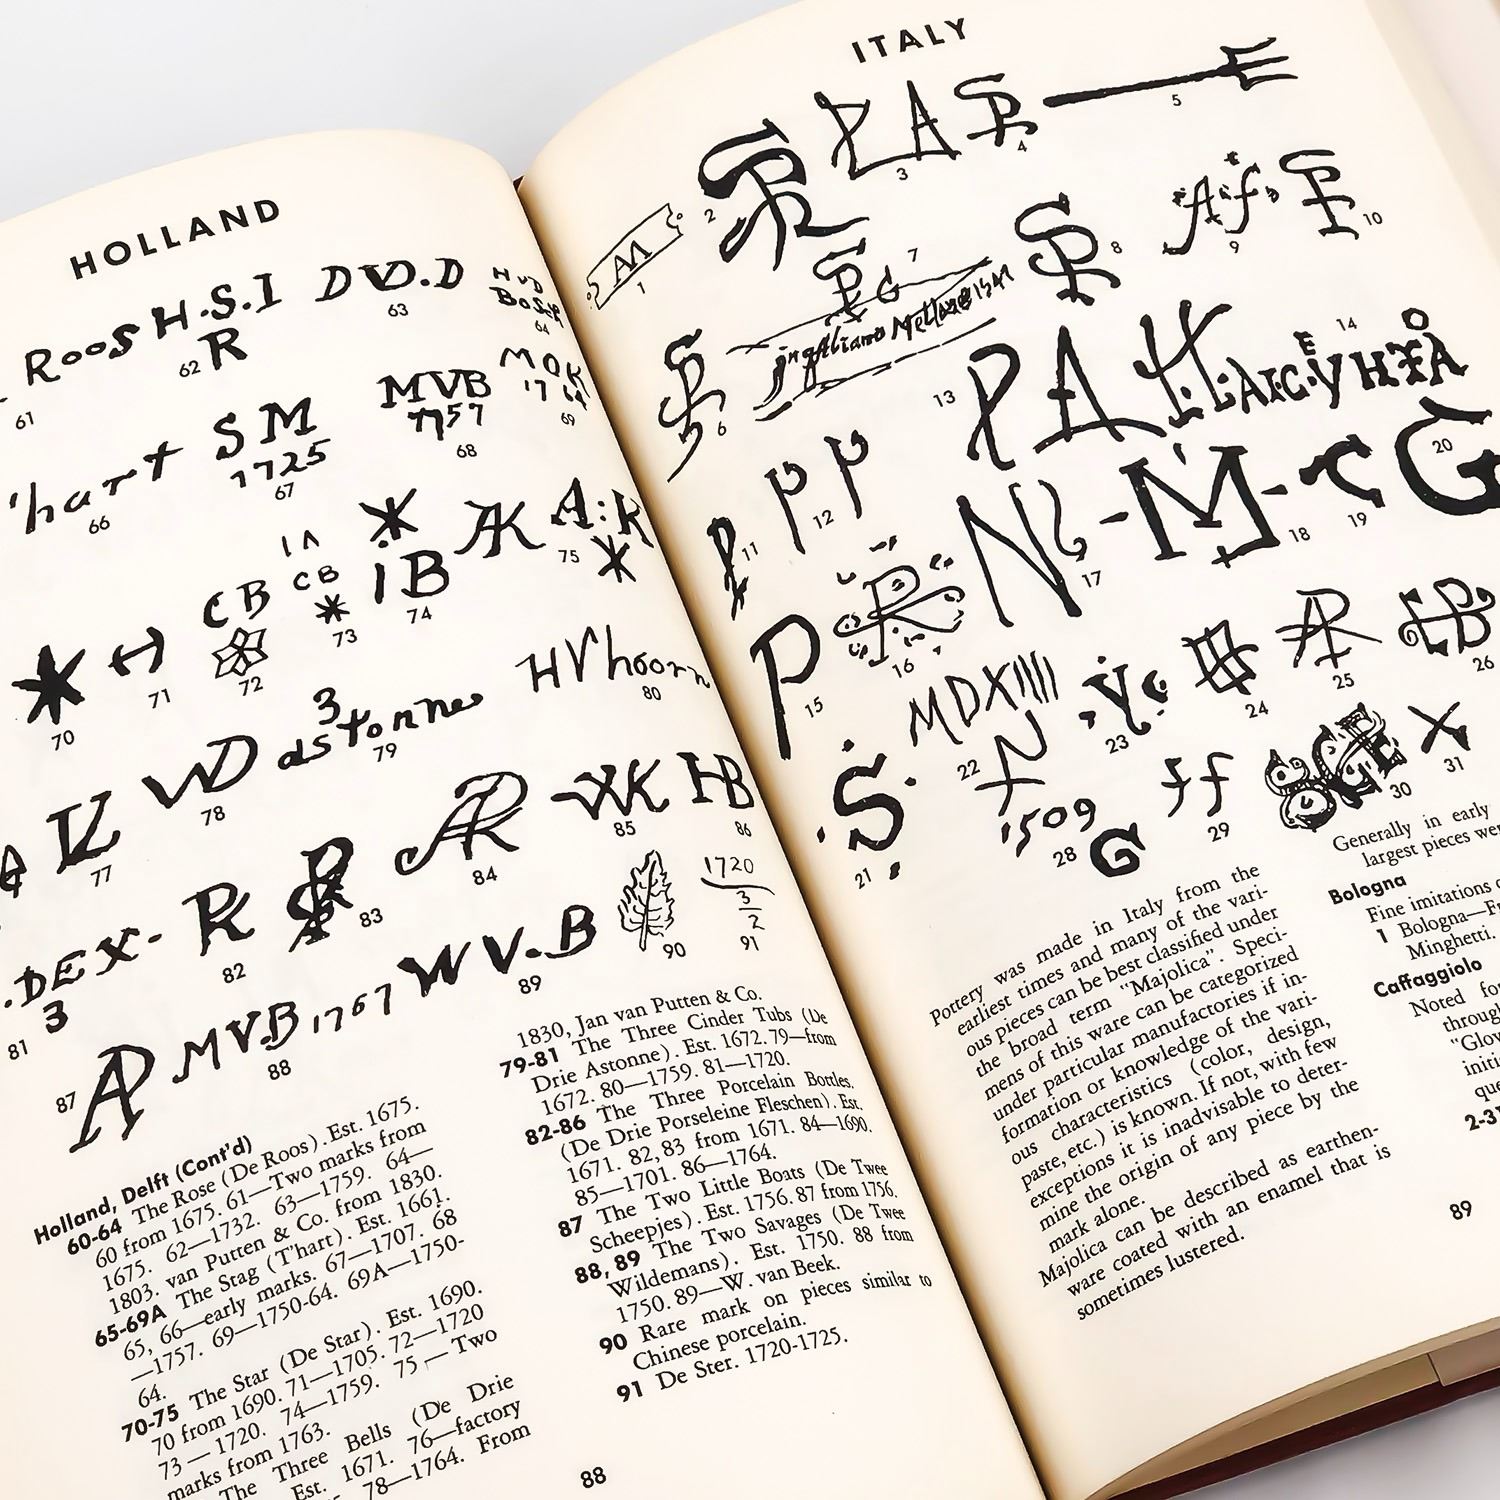 HOLLAND
Roos
61
H.S.I
R
62
DVD.D
63
HVD
Bosch
64
'hart
66
SM
1725
67
MVB
1757
68
MOK
17 64
69
70
71
CB
72
IA
CB
73
iB
74
AK
A:K
75
77
VD
78
3
astonne
79
HVhoorn
80
.DEX.
3
81
R
82
83
84
85
86
87
AP
MVB 1767
88
WV.B
89
90
1720
3
2
91
Holland, Delft (Cont'd)
60-64 The Rose (De Roos). Est. 1675.
60 from 1675. 61—Two marks from
1675. 62—1732. 63—1759. 64—
1803. van Putten & Co. from 1830.
65-69A The Stag (T'hart). Est. 1661.
65, 66—early marks. 67—1707. 68
—1757. 69—1750-64. 69A—1750-
64.
70-75 The Star (De Star). Est. 1690.
70 from 1690. 71—1705. 72—1720
73—1720. 74—1759. 75,— Two
marks from 1763.
The Three Bells (De Drie
Est. 1671. 76—factory
78—1764. From
1830, Jan van Putten & Co.
79-81 The Three Cinder Tubs (De
Drie Astonne). Est. 1672. 79—from
1672. 80—1759. 81—1720.
82-86 The Three Porcelain Bottles.
(De Drie Porseleine Fleschen). Est.
1671. 82, 83 from 1671. 84—1690.
85—1701. 86—1764.
87 The Two Little Boats (De Twee
Scheepjes). Est. 1756. 87 from 1756.
88, 89 The Two Savages (De Twee
Wildemans). Est. 1750. 88 from
1750. 89—W. van Beek.
90 Rare mark on pieces similar to
Chinese porcelain.
91 De Ster. 1720-1725.
88
ITALY
1
2
3
4
5
6
7
8
9
10
11
P P
12
13
14
P
15
16
N
17
M
18
19
G
20
S
21
MDXIIII
22
23
24
25
26
1509
G
28
ff
29
30
X
31
Pottery was made in Italy from the
earliest times and many of the vari-
ous pieces can be best classified under
the broad term "Majolica". Speci-
mens of this ware can be categorized
under particular manufactories if in-
formation or knowledge of the vari-
ous characteristics (color, design,
paste, etc.) is known. If not, with few
exceptions it is inadvisable to deter-
mine the origin of any piece by the
mark alone.
Majolica can be described as earthen-
ware coated with an enamel that is
sometimes lustered.
Generally in early
largest pieces wer
Bologna
Fine imitations o
1 Bologna—Fr
Minghetti.
Caffaggiolo
Noted fo
through
"Glov
initi
que
2-31
89